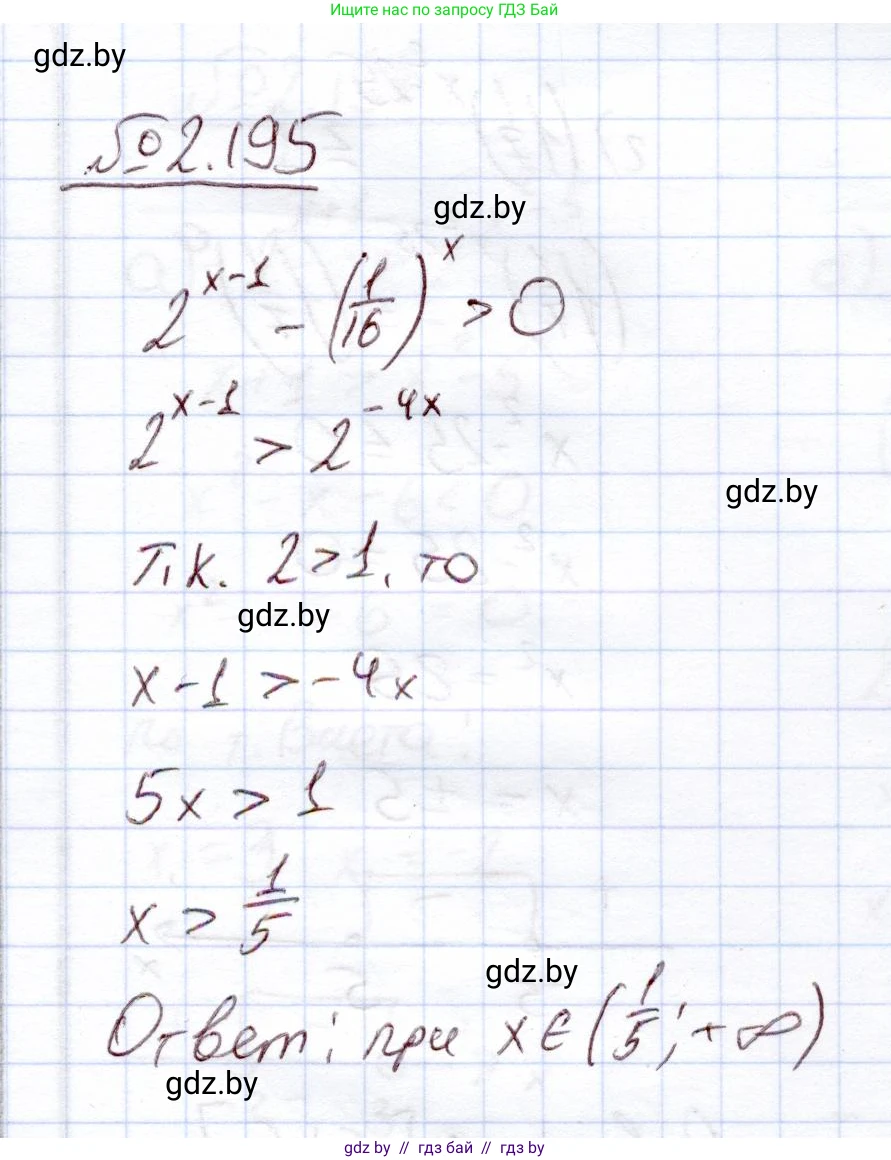 Ищите нас по запросу ГДЗ Бай
gdz.by
№2.195
gdz.by
2^(x-1) - (1/16)^x > 0
2^(x-1) > 2^(-4x)
gdz.by
Т.к. 2>1, то
gdz.by
x-1 > -4x
5x > 1
x > 1/5
gdz.by
Ответ: при x∈(1/5; +∞)
gdz.by
gdz.by // гдз бай // gdz.by